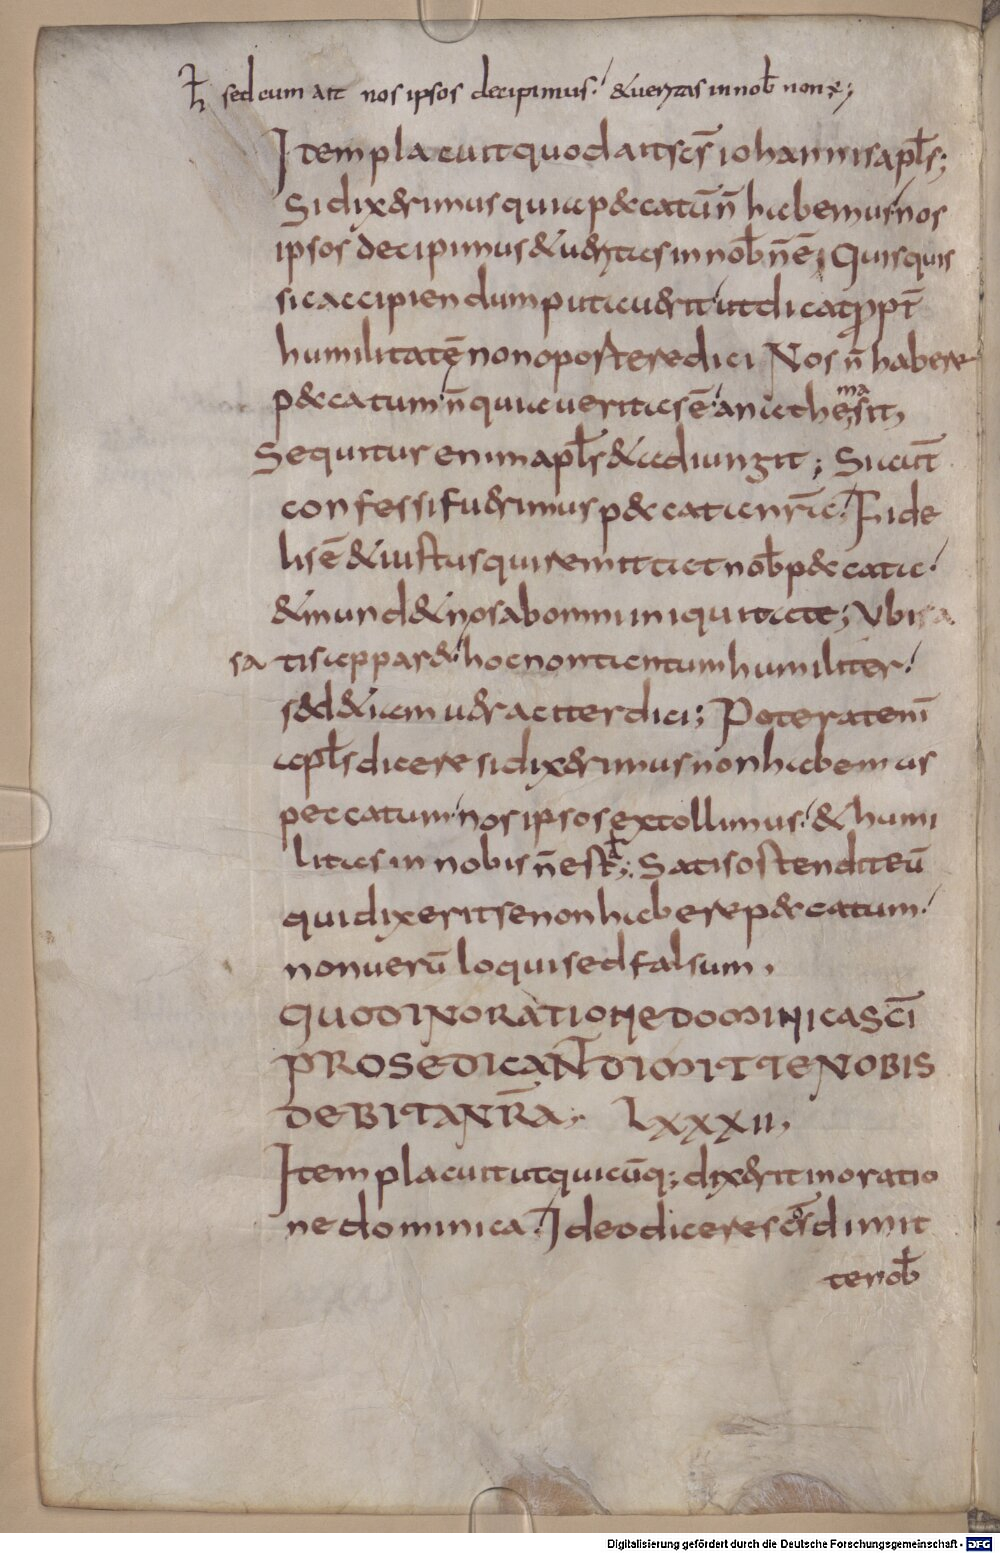 ħ sed cum ait nos ipsos decipimus. & ueritas in nob̄ non ē;
Item placuit quod ait scs̄ iohannis apl̄s;
Si dix&rimus quia p&catū n̄ habemus. nos
ipsos decipimus & u&ritas in nob̄ n̄ ē; Quisquis
sic accipiendum putau&rit ut dicat ꝓpt̄
humilitatē non oportere dici Nos n̄ habere
p&catum. n̄ quia ueritas ē. anathema sit,
Sequitur enim apl̄s & adiungit; Si aut̄
confessi fu&rimus p&cata nr̄a. Fide
lis ē & iustus qui remittat nob̄ p&cata.
& mund& nos ab omni iniquitate; Ubi sa
sa tis appar&. hoc non tantum humiliter.
s&d &iam u&raciter dici; Poterat eni̅
apl̄s dicere si dix&rimus non habemus
peccatum. nos ipsos extollimus. & humi
litas in nobis n̄ est; Satis ostendit eū
qui dixerit se non habere p&catum.
non uerū loqui sed falsum,
QUOD IN ORATIONE DOMINICA SCĪ
PRO SE DICANT DIMITTE NOBIS
DEBITA NR̄A; LXXXII,
Item placuit ut quicūq; dix&rit in oratio
ne dominica. Ideo dicere scōs dimit
te nob̄
Digitalisierung gefördert durch die Deutsche Forschungsgemeinschaft - DFG